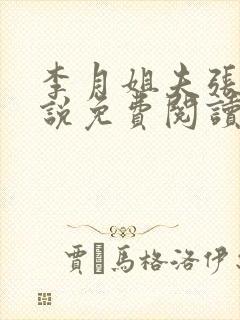 李月姐夫張
說免費閱讀
賈 馬格洛伊